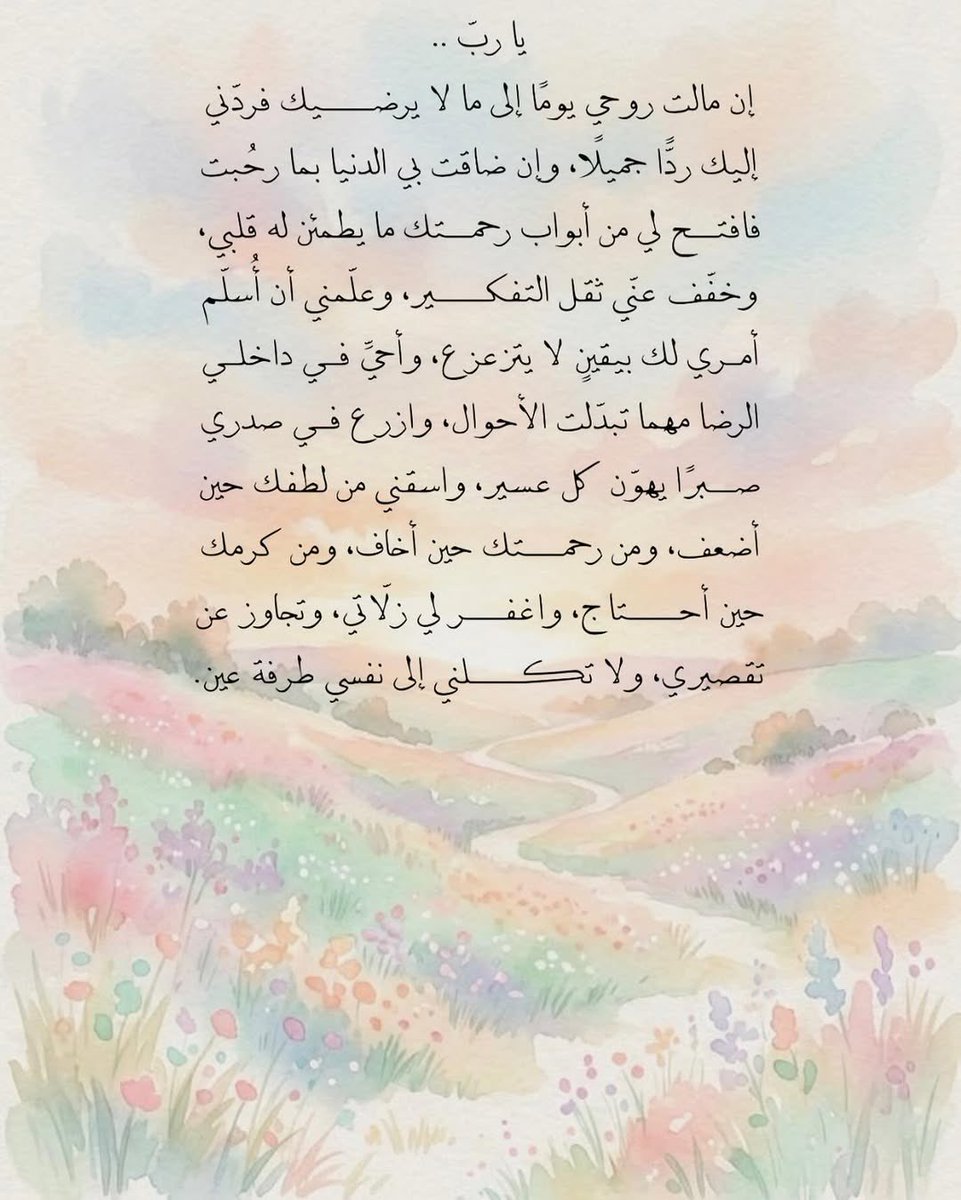 يا ربّ ..
إن مالت روحي يومًا إلى ما لا يرضيك فردّني
إليك ردًّا جميلًا، وإن ضاقت بي الدنيا بما رحُبت
فافتح لي من أبواب رحمتك ما يطمئن له قلبي،
وخفّف عنّي ثقل التفكير، وعلّمني أن أُسلّم
أمري لك بيقينٍ لا يتزعزع، وأحيِّ في داخلي
الرضا مهما تبدّلت الأحوال، وازرع في صدري
صبرًا يهوّن كل عسير، واسقني من لطفك حين
أضعف، ومن رحمتك حين أخاف، ومن كرمك
حين أحتاج، واغفر لي زلّاتي، وتجاوز عن
تقصيري، ولا تكلني إلى نفسي طرفة عين.